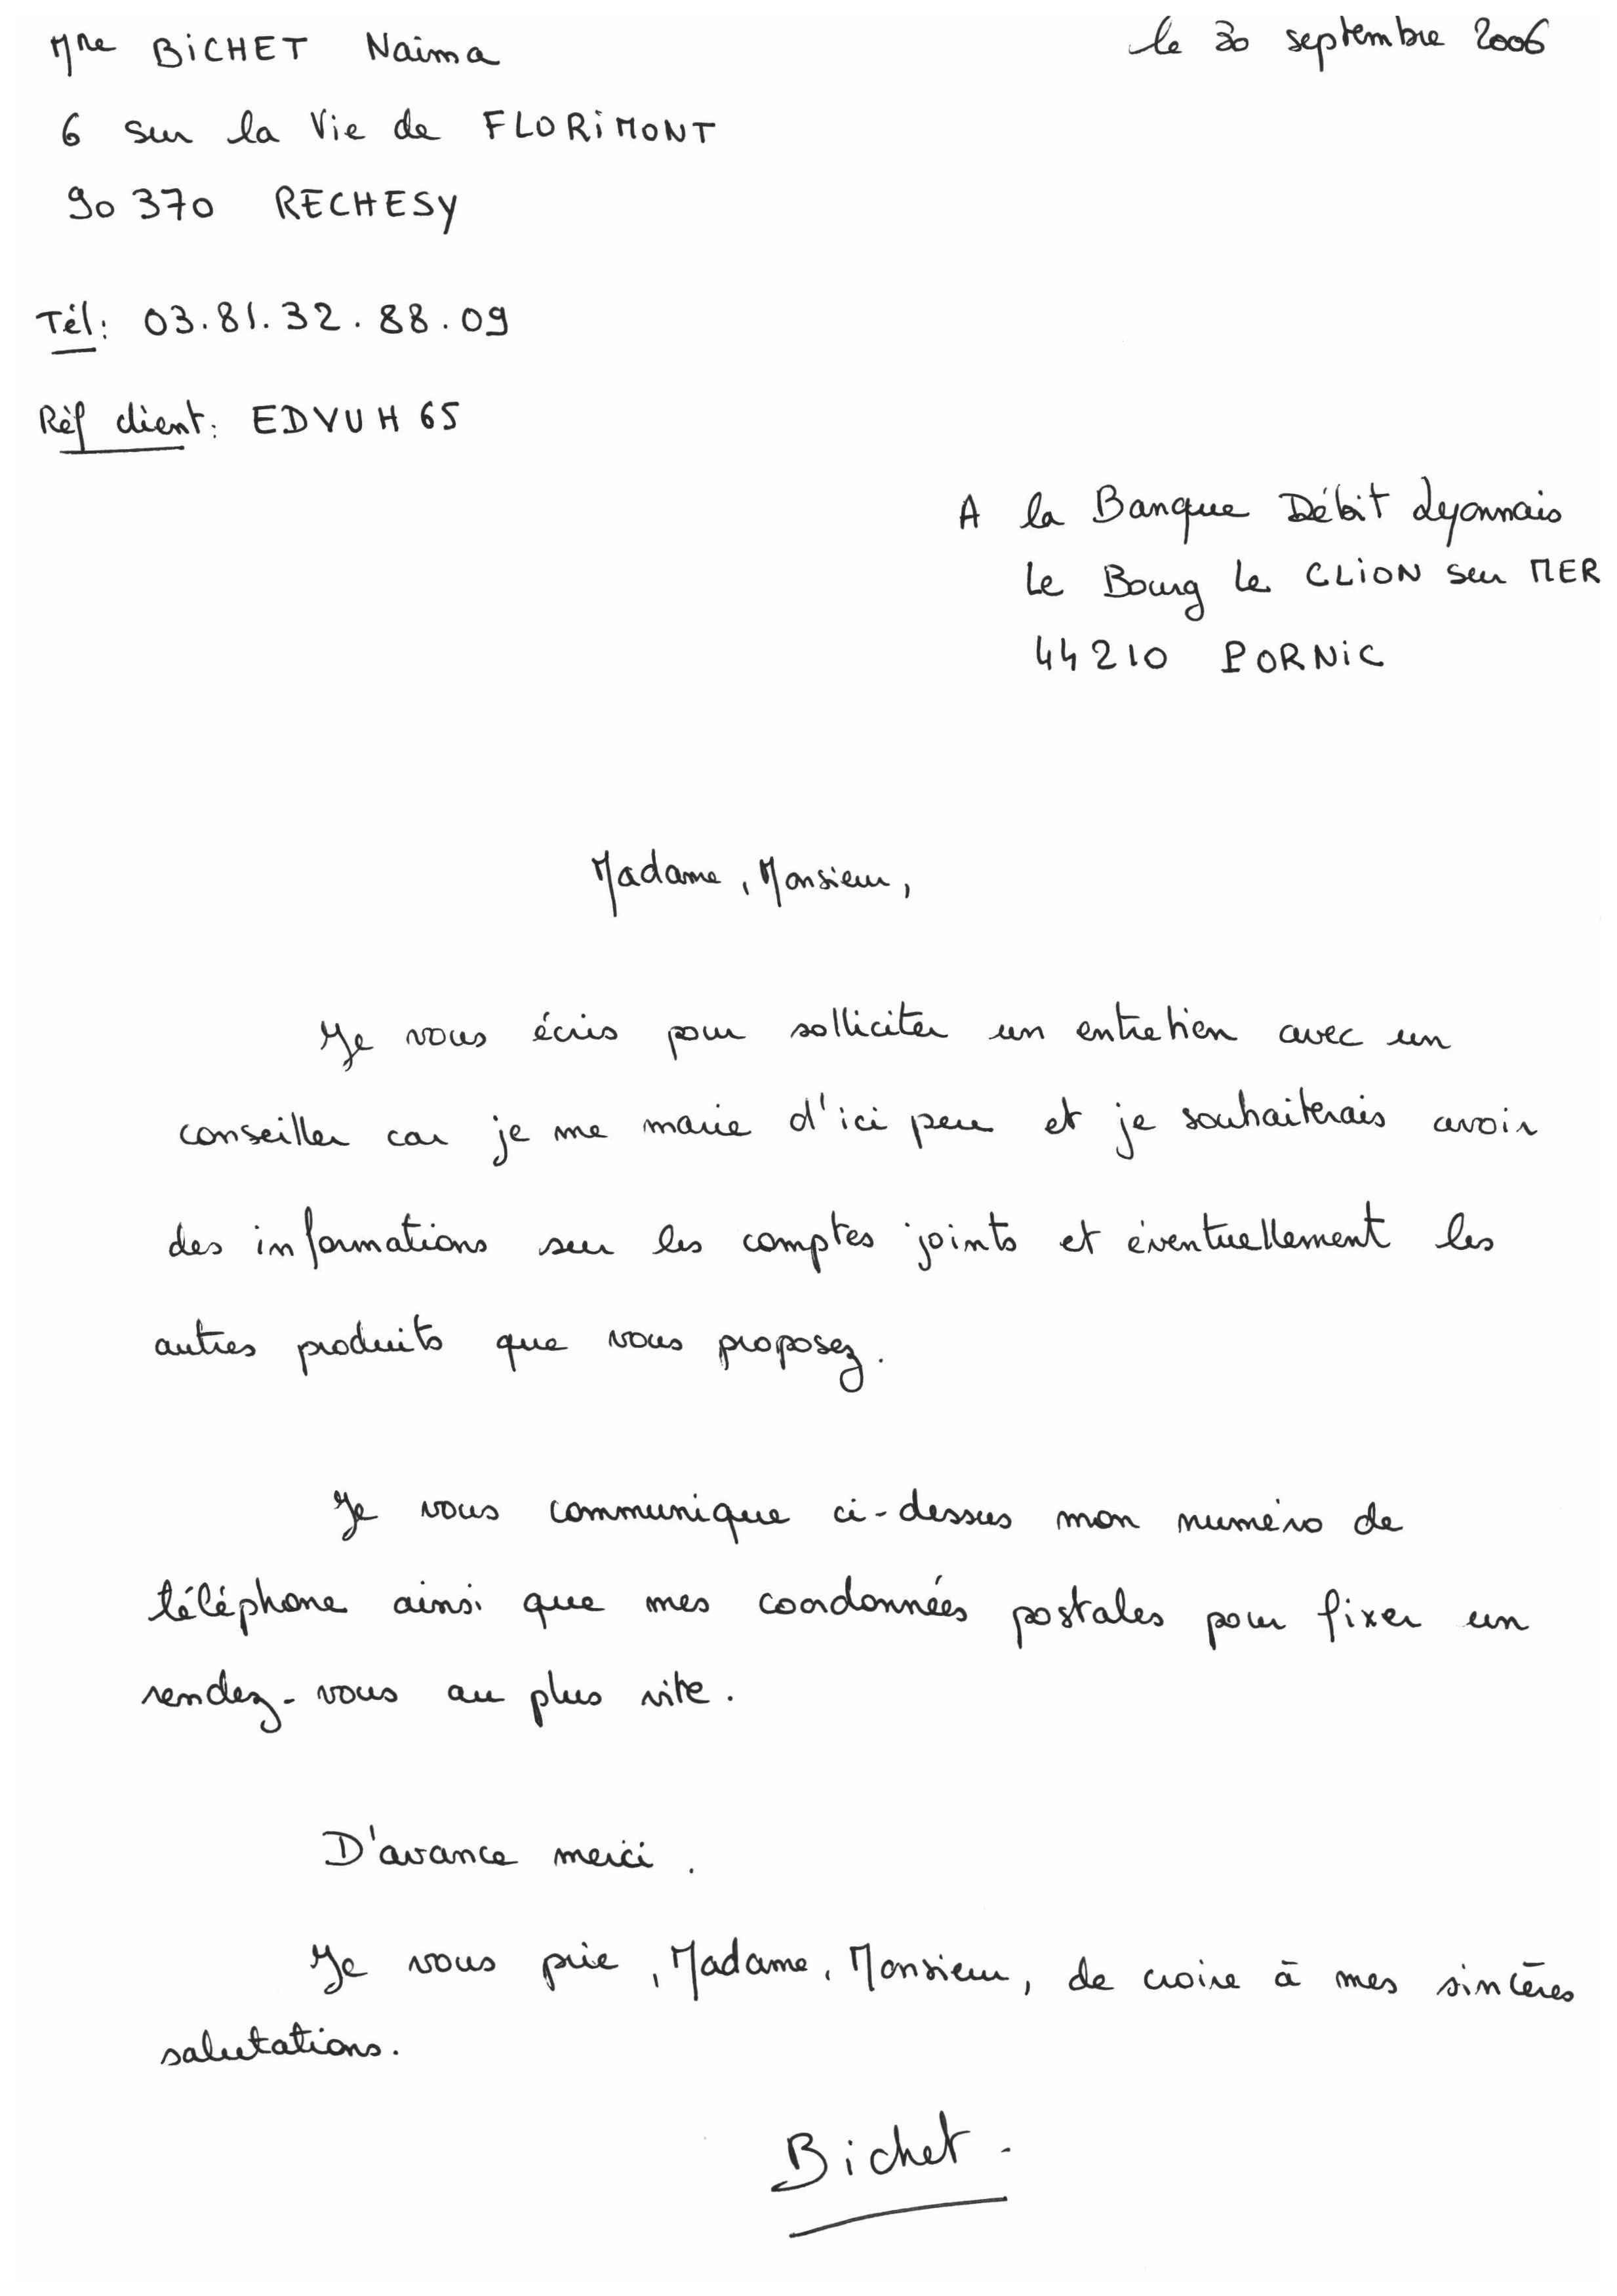 Mme BICHET Naima
le 30 septembre 2006
6 sur la Vie de FLORIMONT
90 370 RECHESY
Tél: 03.81.32.88.09
Réf client: EDVUH65
A la Banque Débit Lyonnais
Le Bourg le CLION sur MER
44210 PORNIC
Madame, Monsieur,
Je vous écris pour solliciter un entretien avec un
conseiller car je me marie d'ici peu et je souhaiterais avoir
des informations sur les comptes joints et éventuellement les
autres produits que vous proposez.
Je vous communique ci-dessus mon numéro de
téléphone ainsi que mes coordonnées postales pour fixer un
rendez-vous au plus vite.
D'avance merci.
Je vous prie, Madame, Monsieur, de croire à mes sincères
salutations.
Bichet